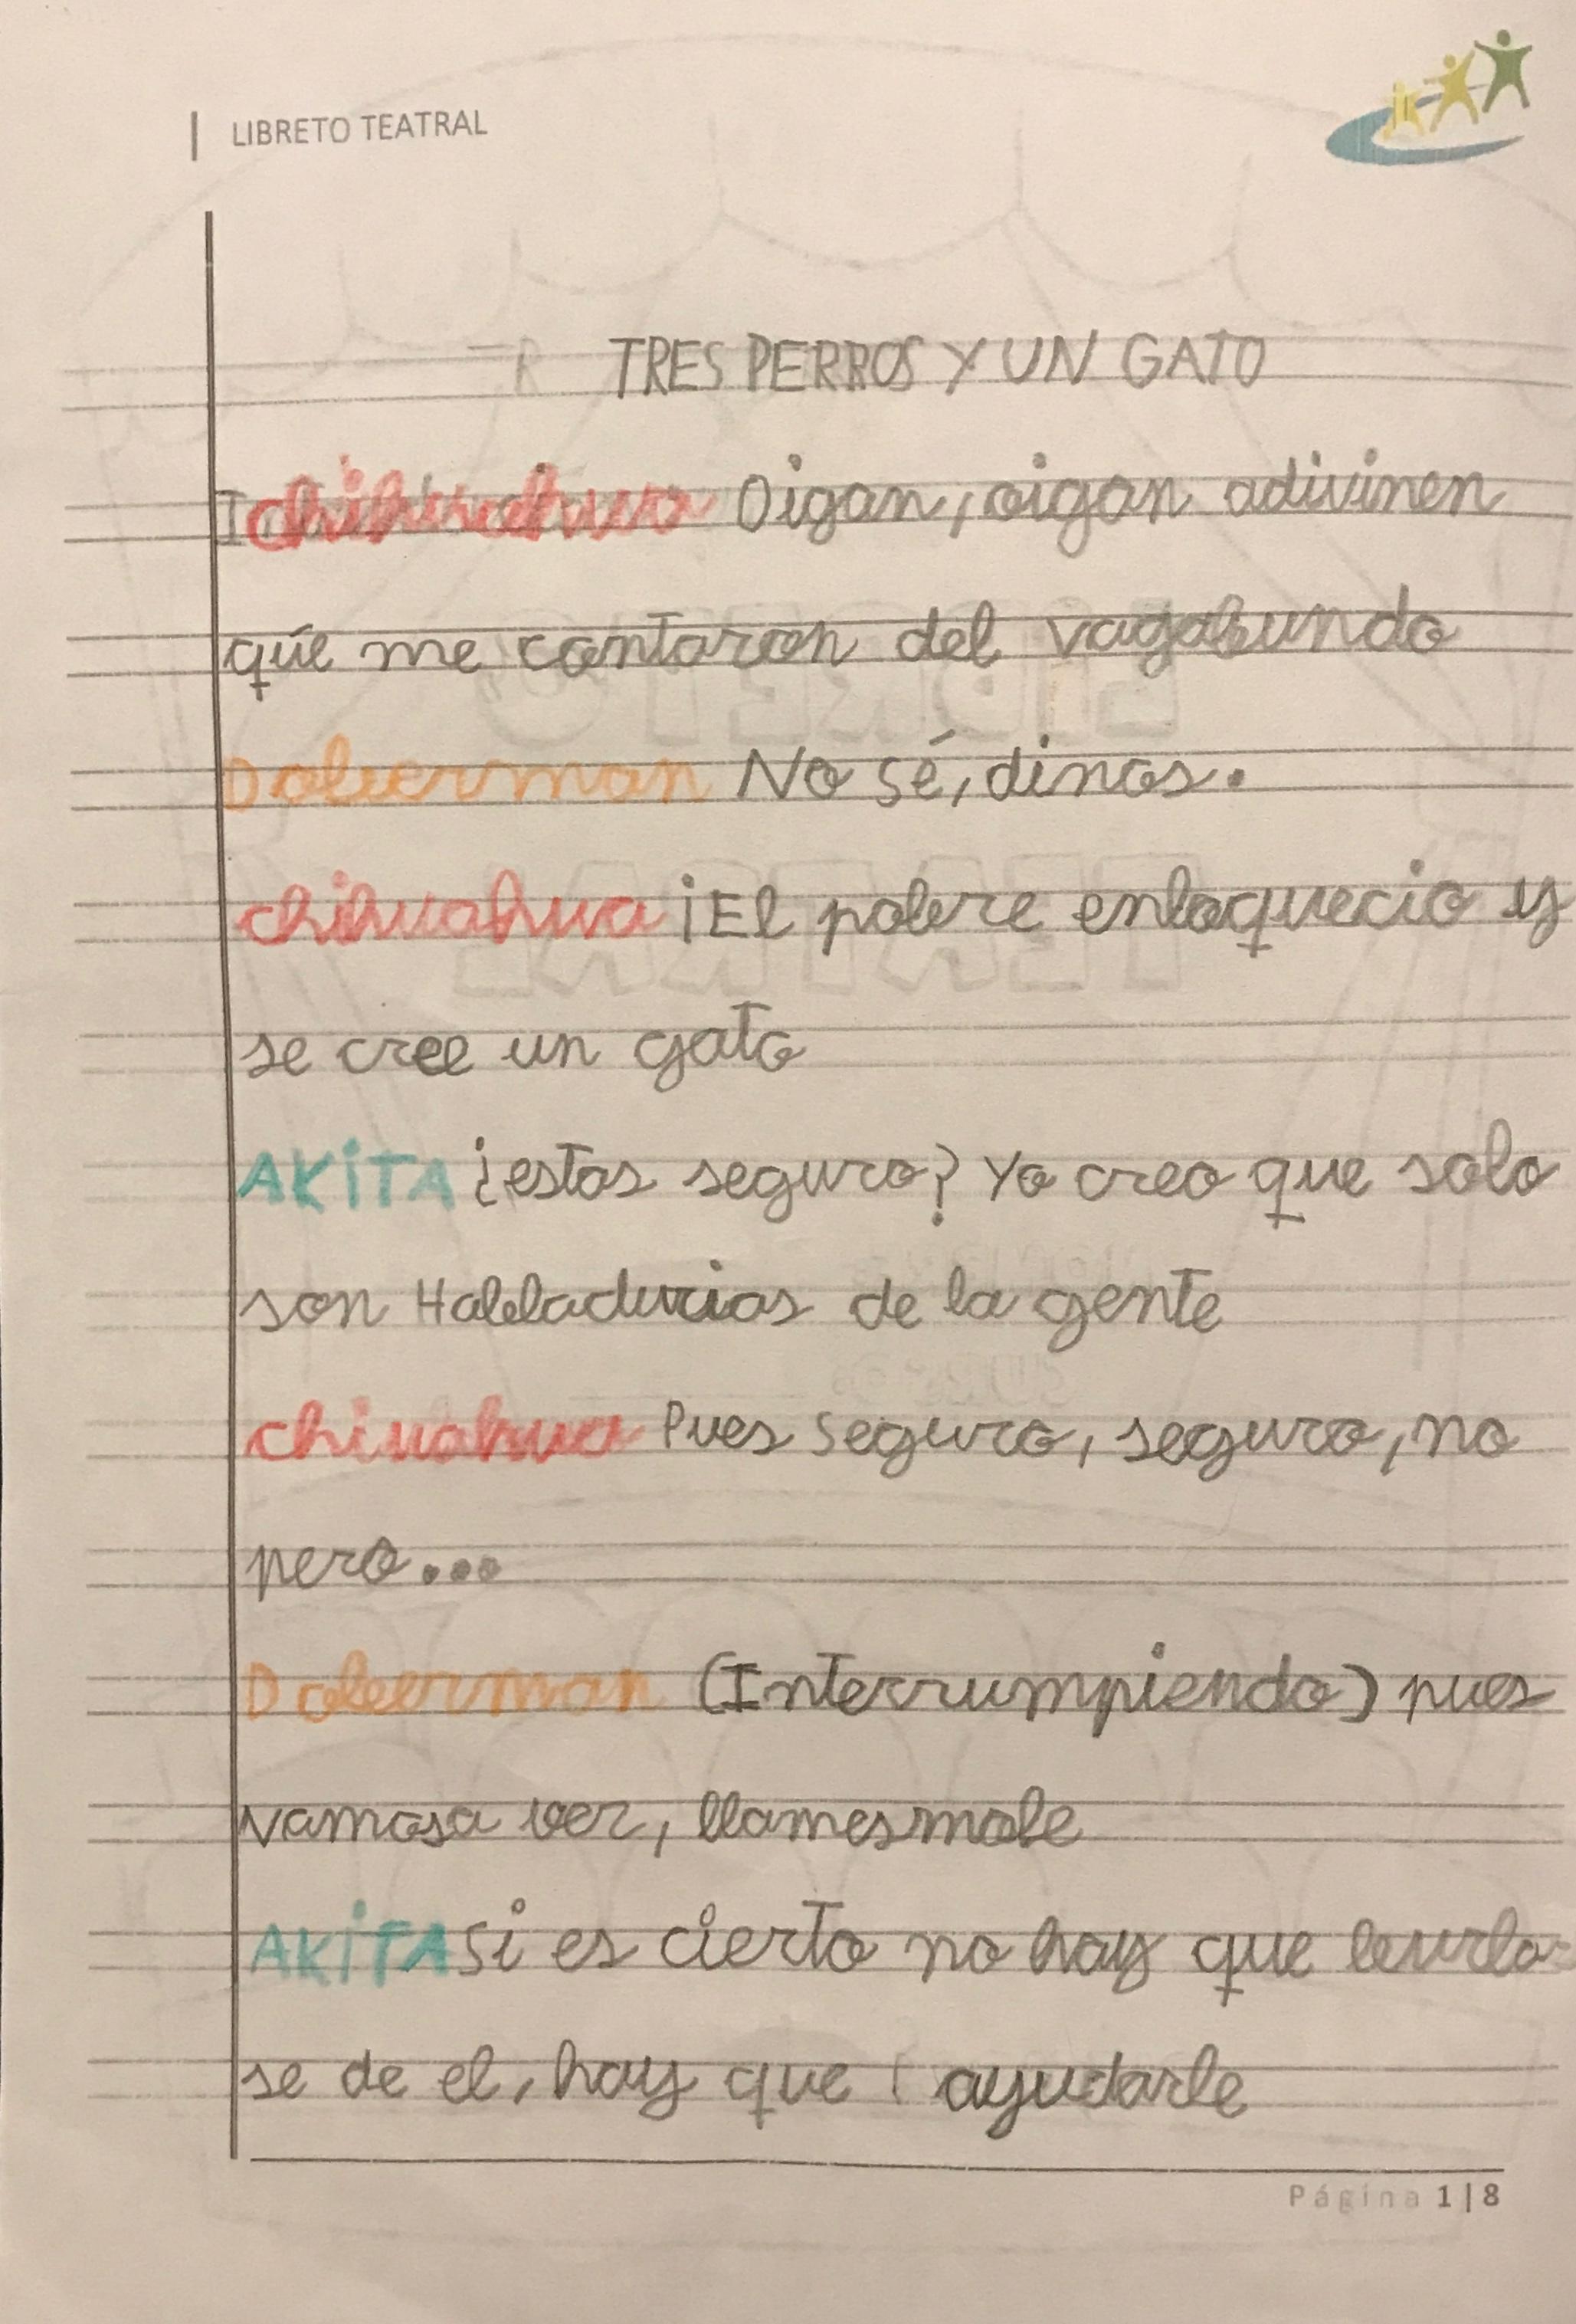 LIBRETO TEATRAL
TRES PERROS Y UN GATO
chihuahua Oigan, oigan adivinen
qúe me contaron del vagabundo
Doberman No sé, dinos.
chihuahua ¡El pobre enloquecio y
se cree un gato
AKiTA ¿estas seguro? Yo creo que solo
son Habladurias de la gente
chiuahua Pues seguro, seguro, no
pero...
Doberman (Interrumpiendo) pues
vamosa ver, llamesmole
AKiTA Si es cierto no hay que burlar
se de el, hay que ayudarle
Página 1|8